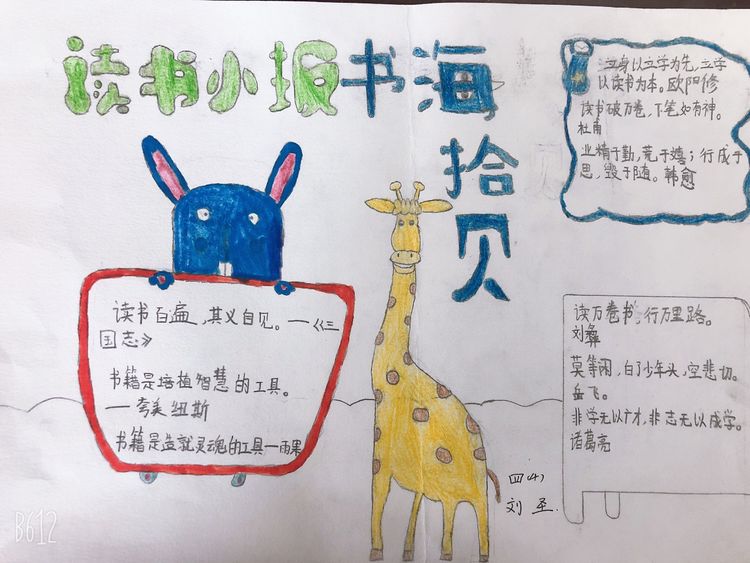 读书小报书海
拾
贝
立身以立学为先,立学
以读书为本。欧阳修
读书破万卷,下笔如有神。
杜甫
业精于勤,荒于嬉;行成于
思,毁于随。韩愈
读书百遍,其义自见。—《三
国志》
书籍是培植智慧的工具。
—夸美纽斯
书籍是造就灵魂的工具—雨果
读万卷书,行万里路。
刘彝
莫等闲,白了少年头,空悲切。
岳飞。
非学无以广才,非志无以成学。
诸葛亮
四(4)
刘圣.
B612